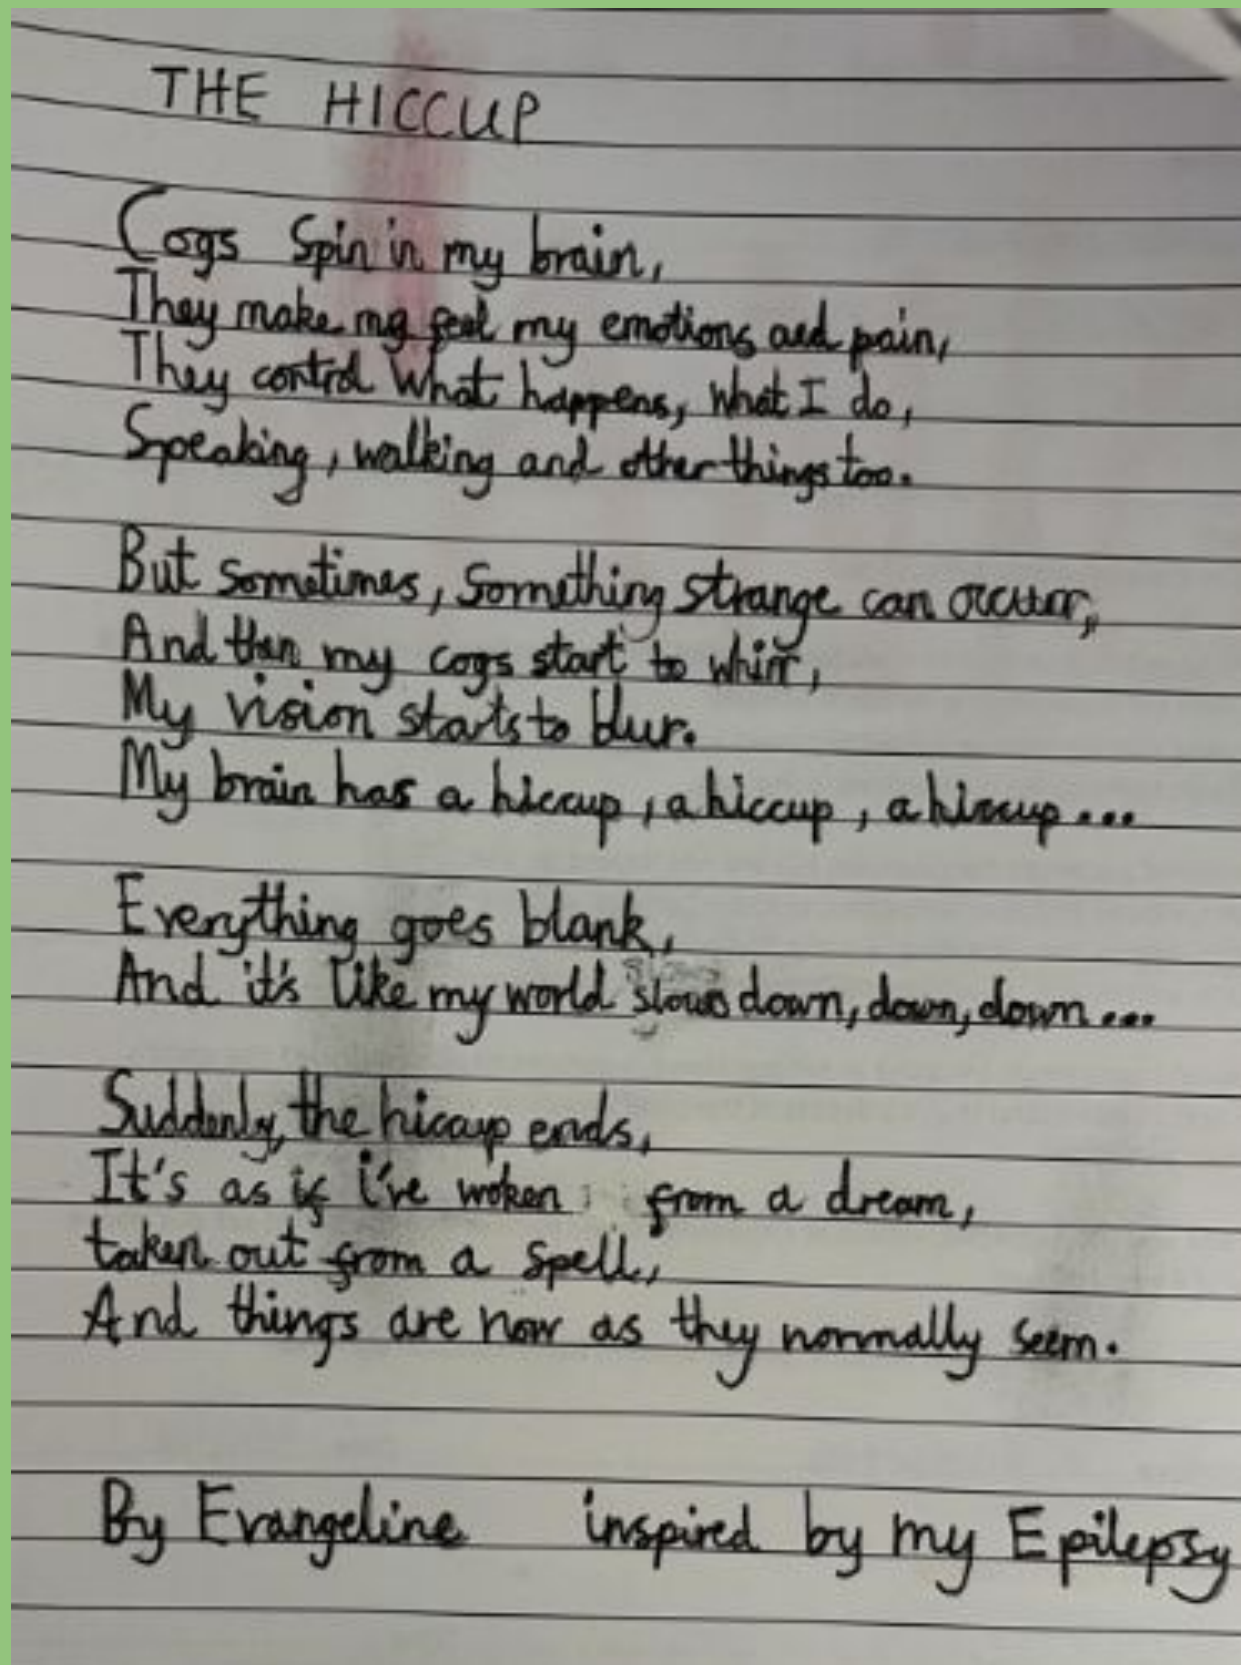 THE HICCUP
Cogs Spin in my brain,
They make me feel my emotions and pain,
They control what happens, what I do,
Speaking, walking and other things too.
But sometimes, Something strange can occur,
And then my cogs start to whirr,
My vision starts to blur.
My brain has a hiccup, a hiccup, a hiccup...
Everything goes blank,
And it's like my world slows down, down, down...
Suddenly, the hiccup ends,
It's as if i've woken from a dream,
taken out from a spell,
And things are now as they normally seem.
By Evangeline inspired by my Epilepsy